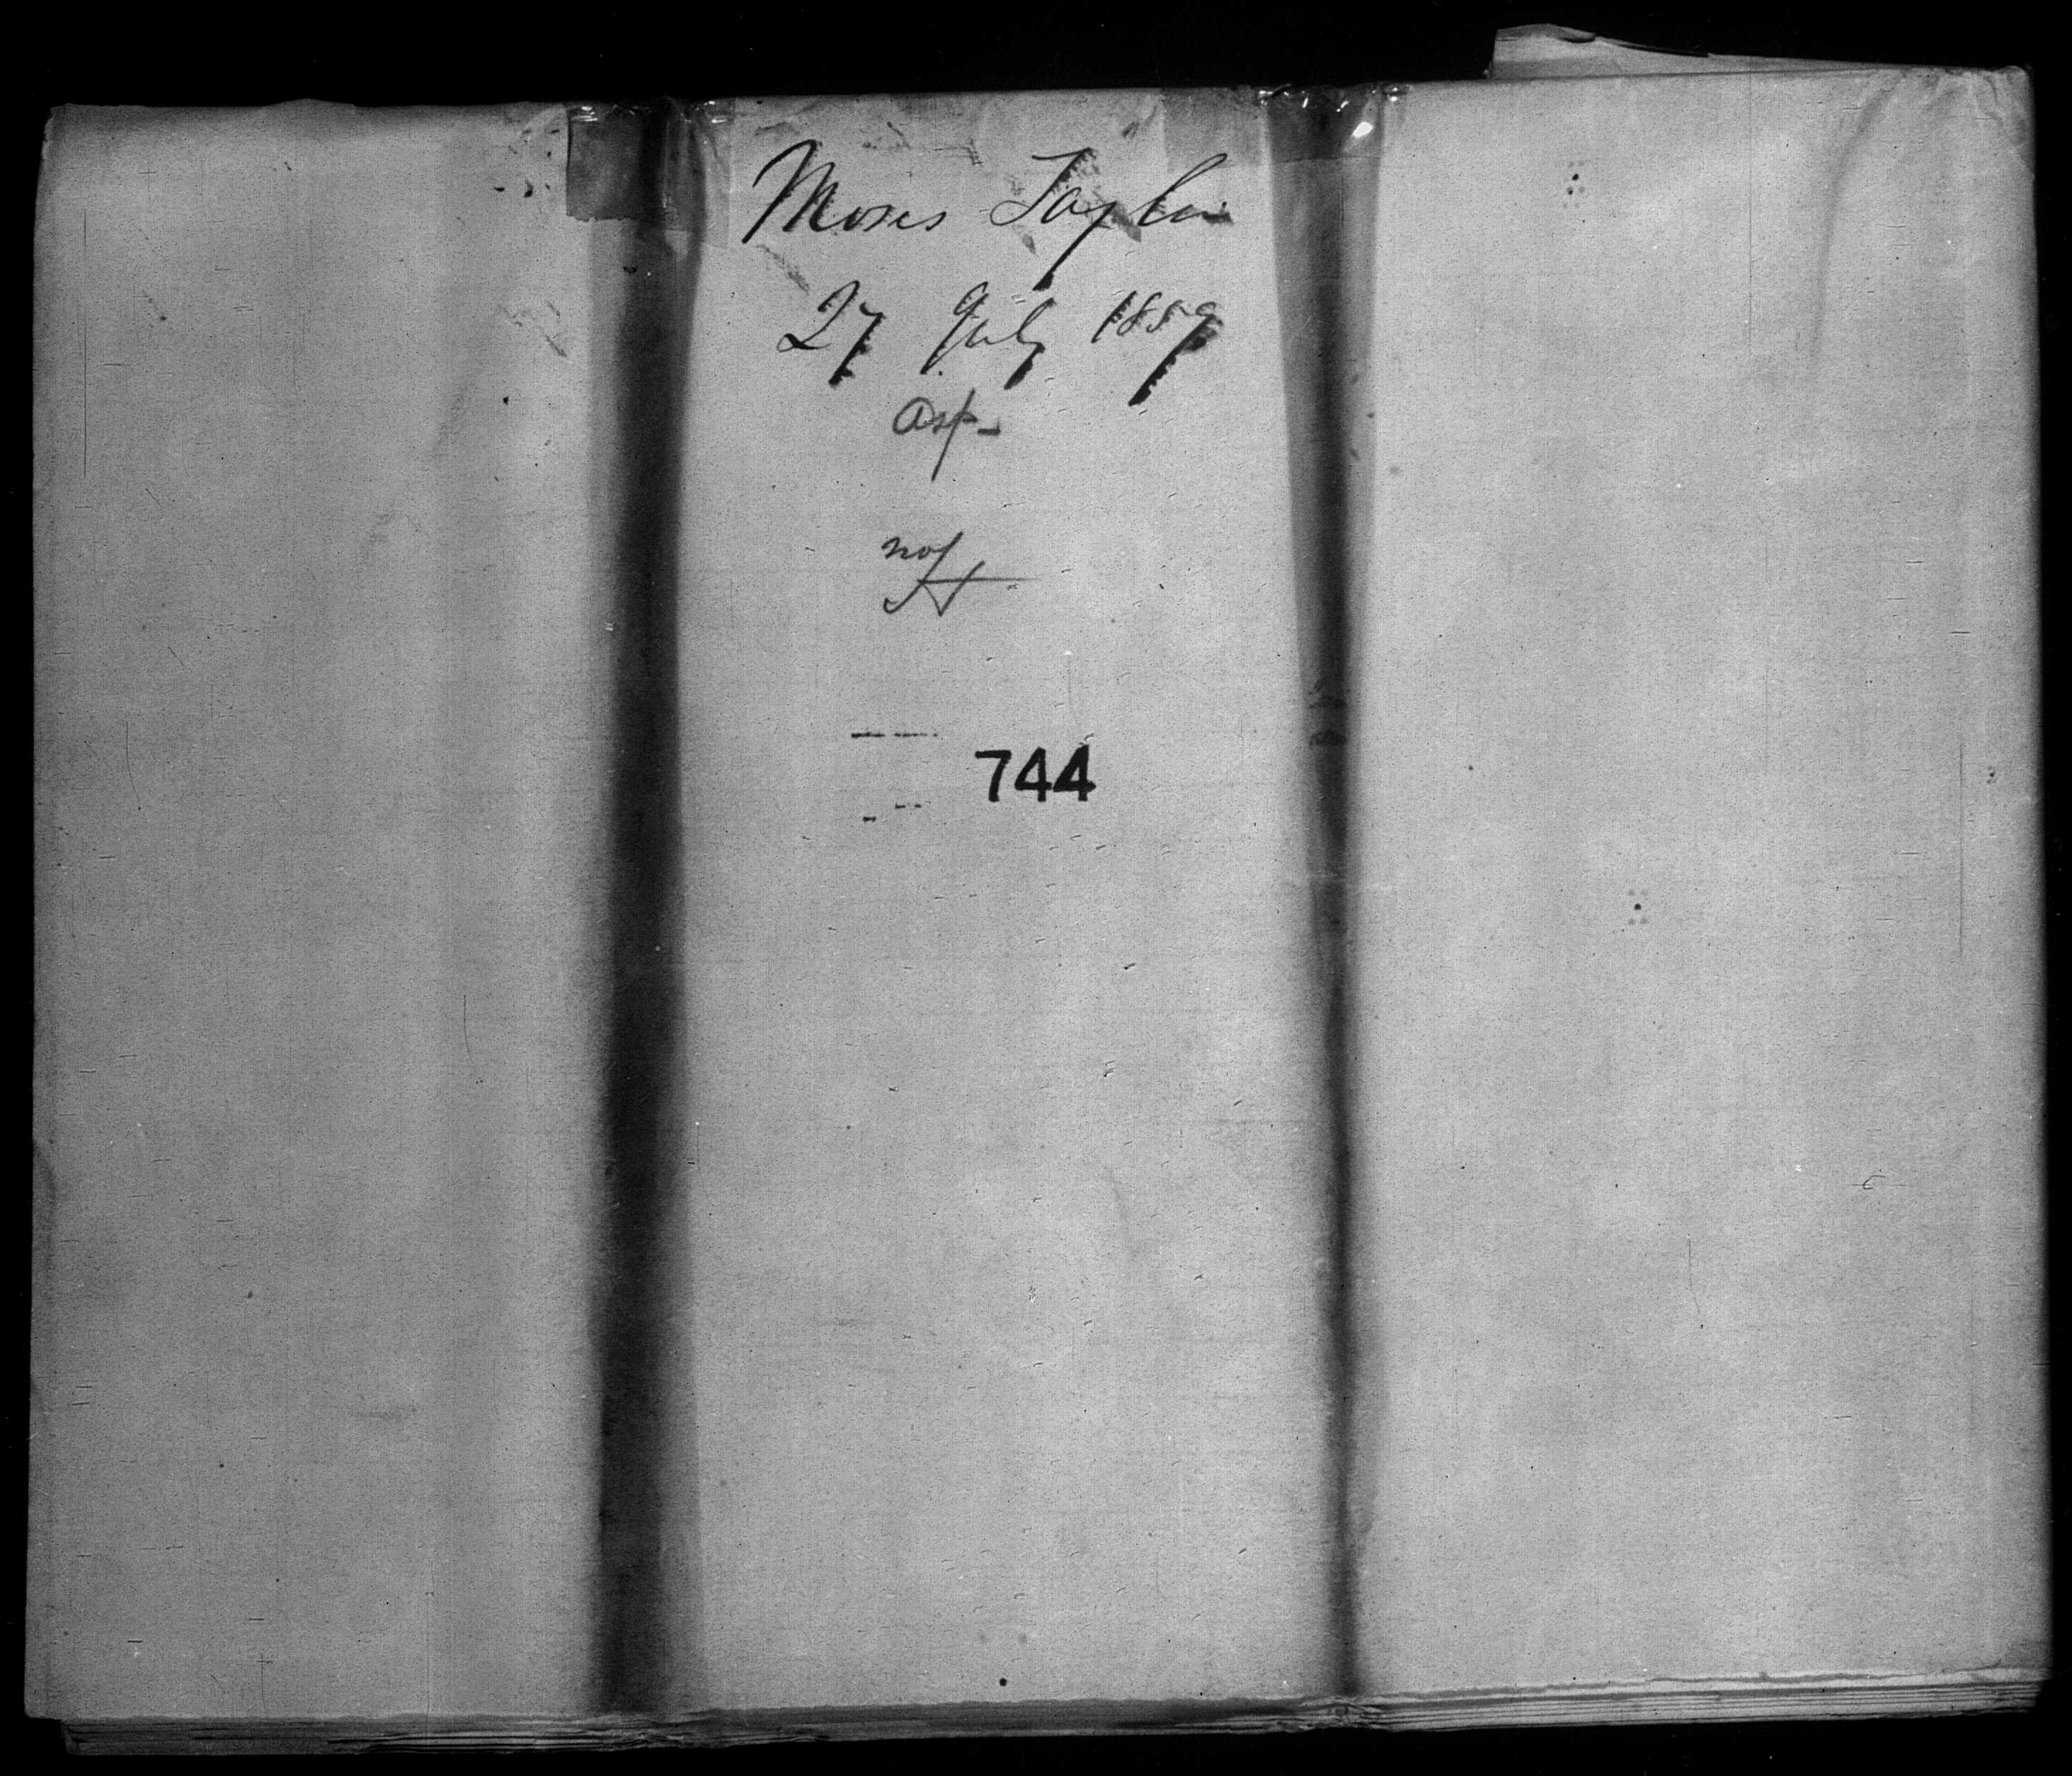 Moses Taylor
27 July 1859
asp-
no
744